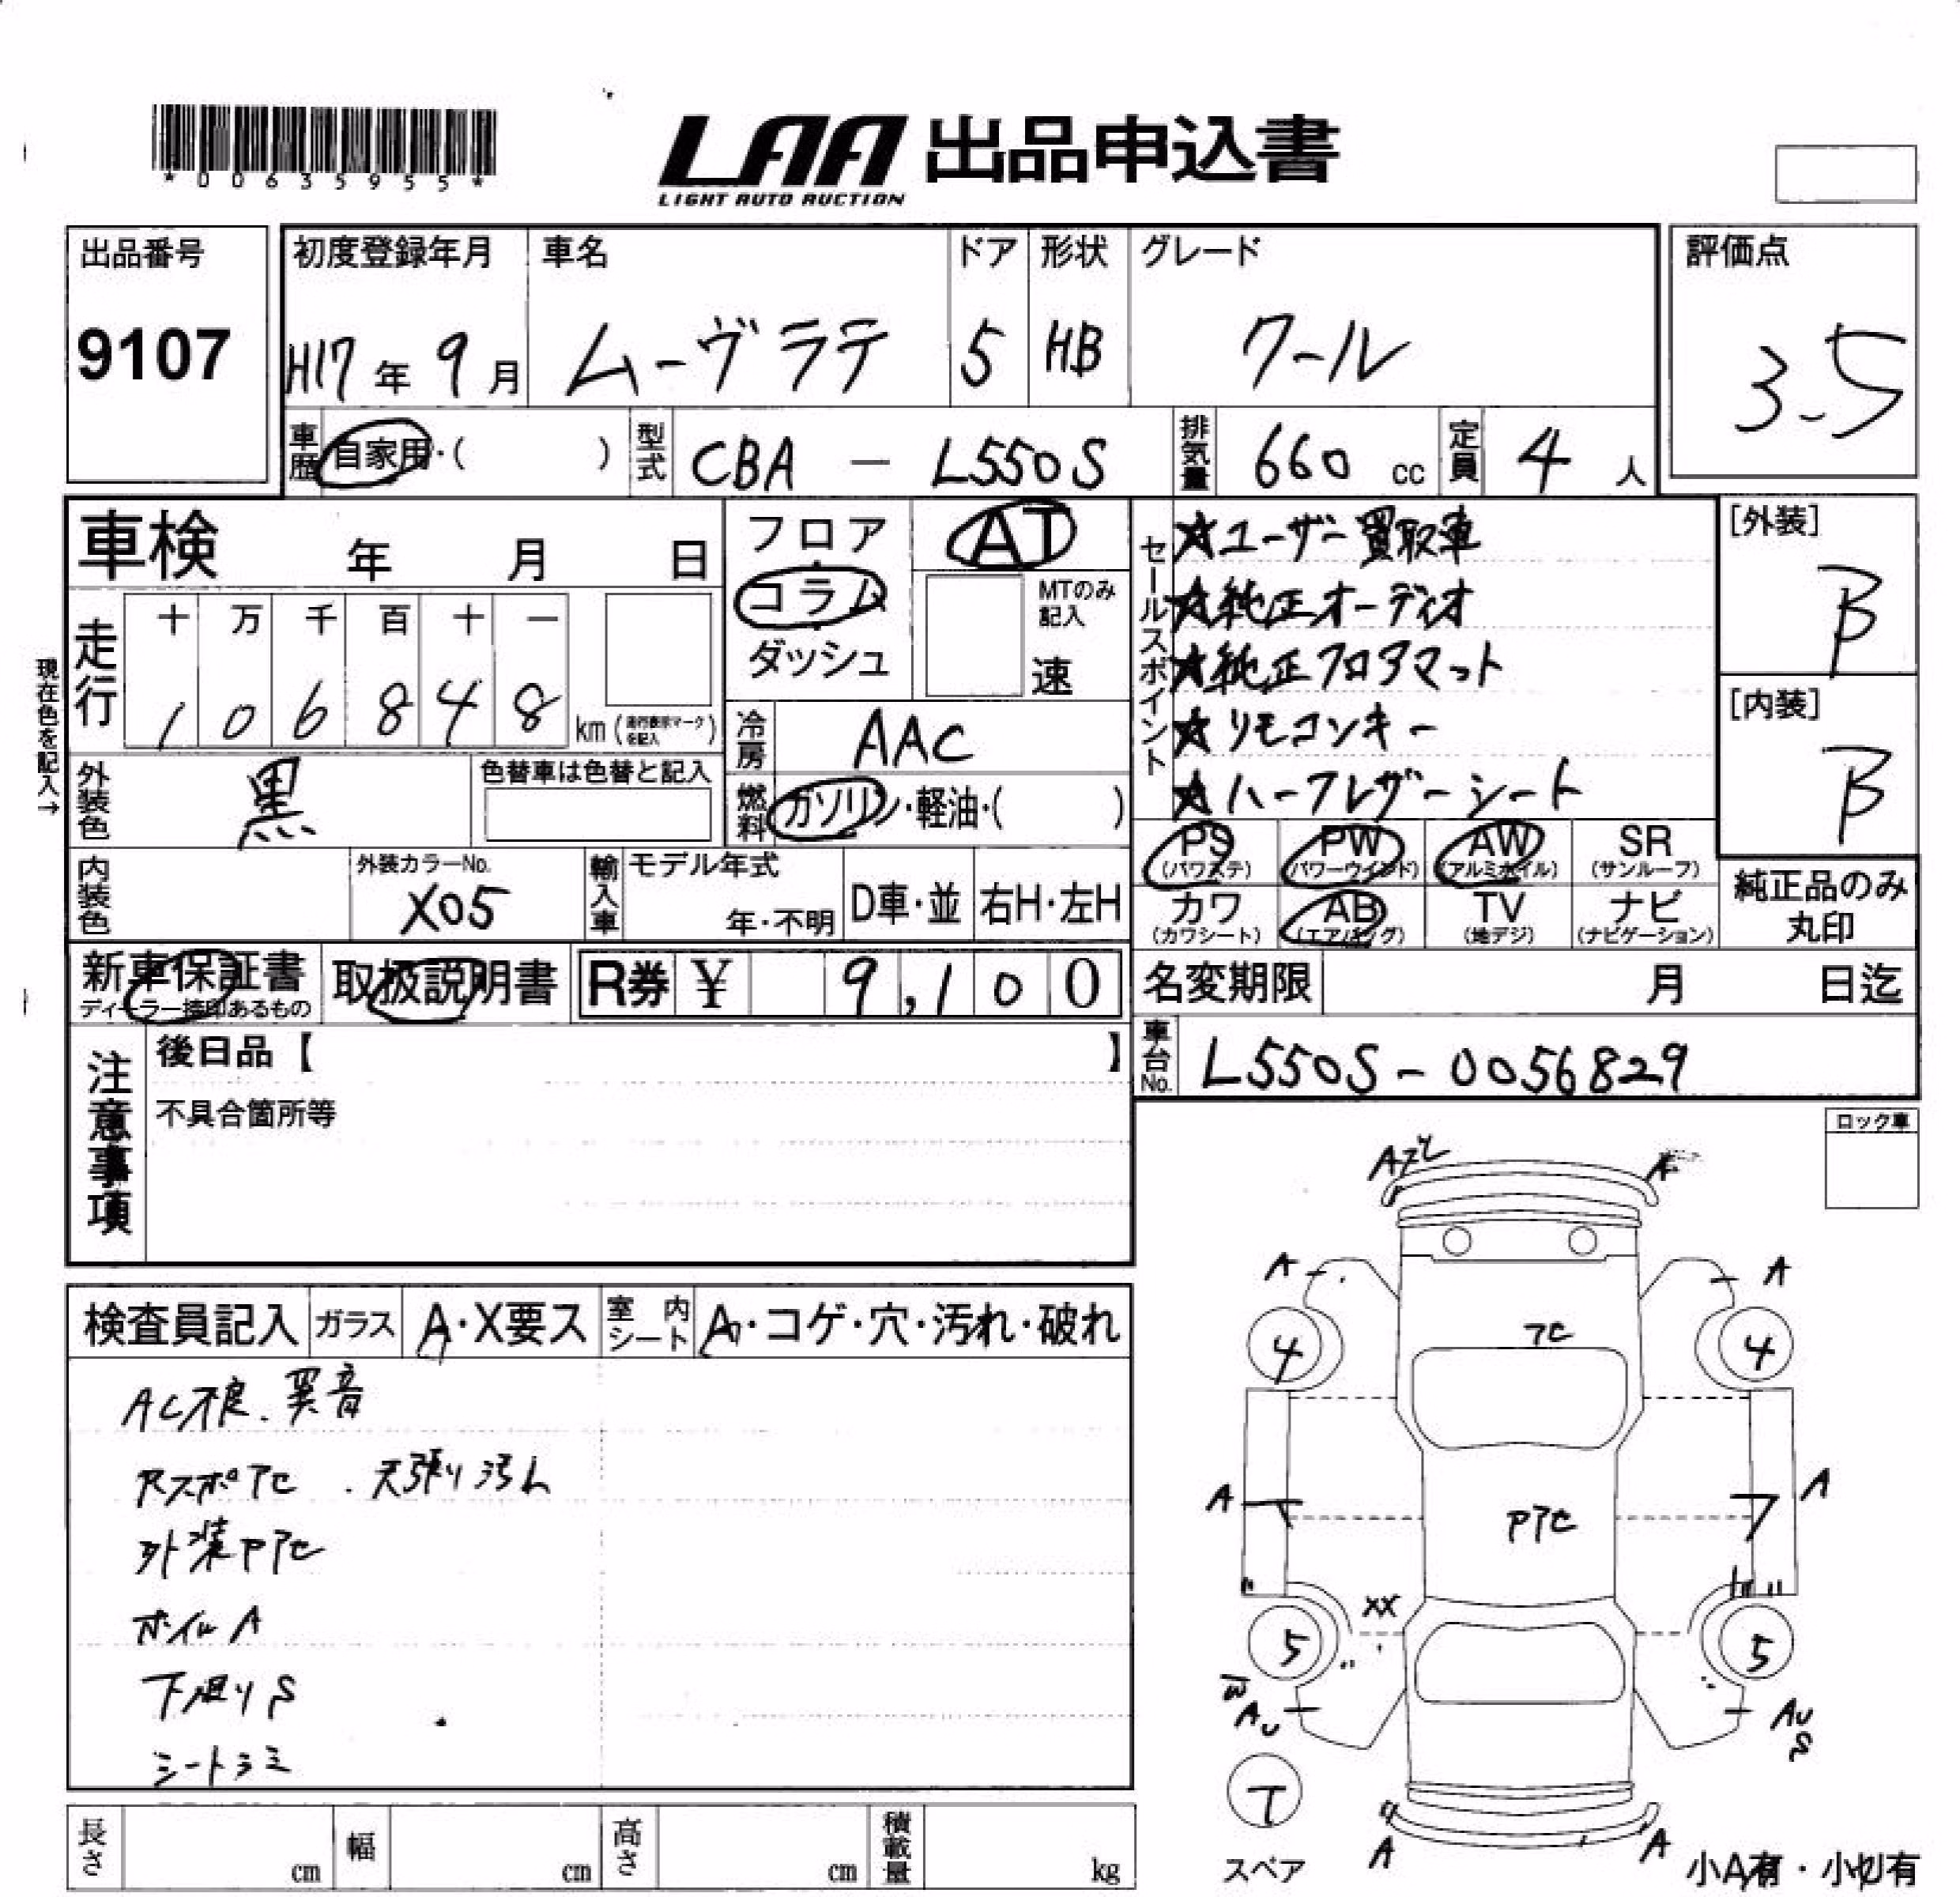 *00635955*
LAA 出品申込書
LIGHT AUTO AUCTION
出品番号
9107
初度登録年月
H17年 9月
車名
ムーヴラテ
ドア
5
形状
HB
グレード
クール
評価点
3.5
車歴 自家用・( )
型式 CBA - L550S
排気量 660 cc
定員 4 人
車検 年 月 日
現在色を記入→
走行
十 万 千 百 十 一
1 0 6 8 4 8 km (走行表示マークを記入)
フロア
コラム
ダッシュ
AT
MTのみ記入
速
冷房 AAC
燃料 ガソリン・軽油・( )
セールスポイント
★ユーザー買取車
★純正オーディオ
★純正フロアマット
★リモコンキー
★ハーフレザーシート
[外装]
B
[内装]
B
外装色 黒
色替車は色替と記入
内装色
外装カラーNo.
X05
輸入車
モデル年式
年・不明
D車・並
右H・左H
PS (パワステ)
PW (パワーウインド)
AW (アルミホイル)
SR (サンルーフ)
カワ (カワシート)
AB (エアバッグ)
TV (地デジ)
ナビ (ナビゲーション)
純正品のみ丸印
新車保証書
ディーラー捺印あるもの
取扱説明書
R券 ¥ 9,100
名変期限 月 日迄
車台No. L550S-0056829
注意事項
後日品【 】
不具合箇所等
ロック車
検査員記入
ガラス A・X要ス
室内シート A・コゲ・穴・汚れ・破れ
AC不良.異音
Rスポアセ .天張り汚れ
外装Pアセ
ホイルA
下廻りS
シートシミ
A A
A A
アセ
4 4
A A
Pアセ
XX
5 5
W
AU AU
S
T
スペア
A A
小A有・小U有
長さ cm
幅 cm
高さ cm
積載量 kg